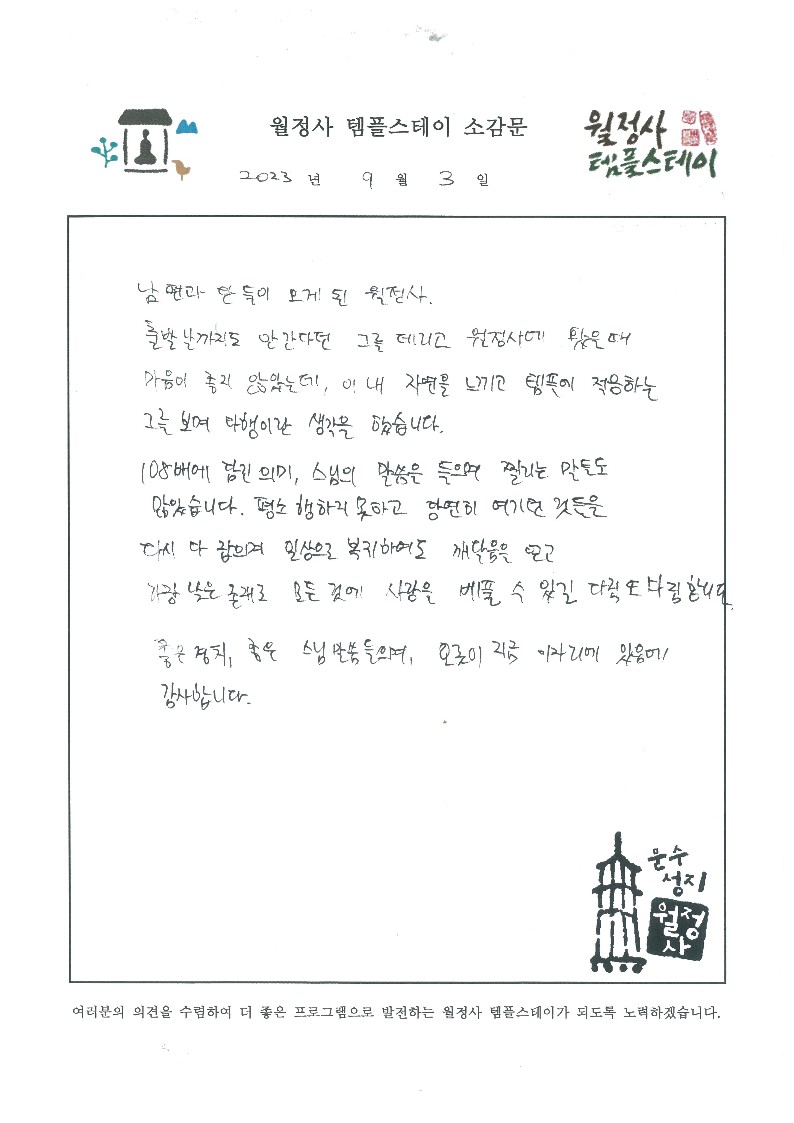 월정사 템플스테이 소감문
월정사
템플스테이
2023 년 9 월 3 일
남편과 단 둘이 오게 된 월정사.
출발 날까지도 안 간다던 그를 데리고 월정사에 왔을 때
마음이 좋지 않았는데, 이내 자연을 느끼고 템플에 적응하는
그를 보며 다행이란 생각을 했습니다.
108배에 담긴 의미, 스님의 말씀을 들으며 찔리는 말들도
많았습니다. 평소 행하지 못하고 당연히 여기던 것들을
다시 다 잡으며 일상으로 복귀하여도 깨달음을 얻고
가장 낮은 존재로 모든 것에 사랑을 베풀 수 있길 다짐 또 다짐합니다.
좋은 경치, 좋은 스님 말씀 들으며, 오롯이 지금 이 자리에 있음에
감사합니다.
문수
성지
월정
사
여러분의 의견을 수렴하여 더 좋은 프로그램으로 발전하는 월정사 템플스테이가 되도록 노력하겠습니다.